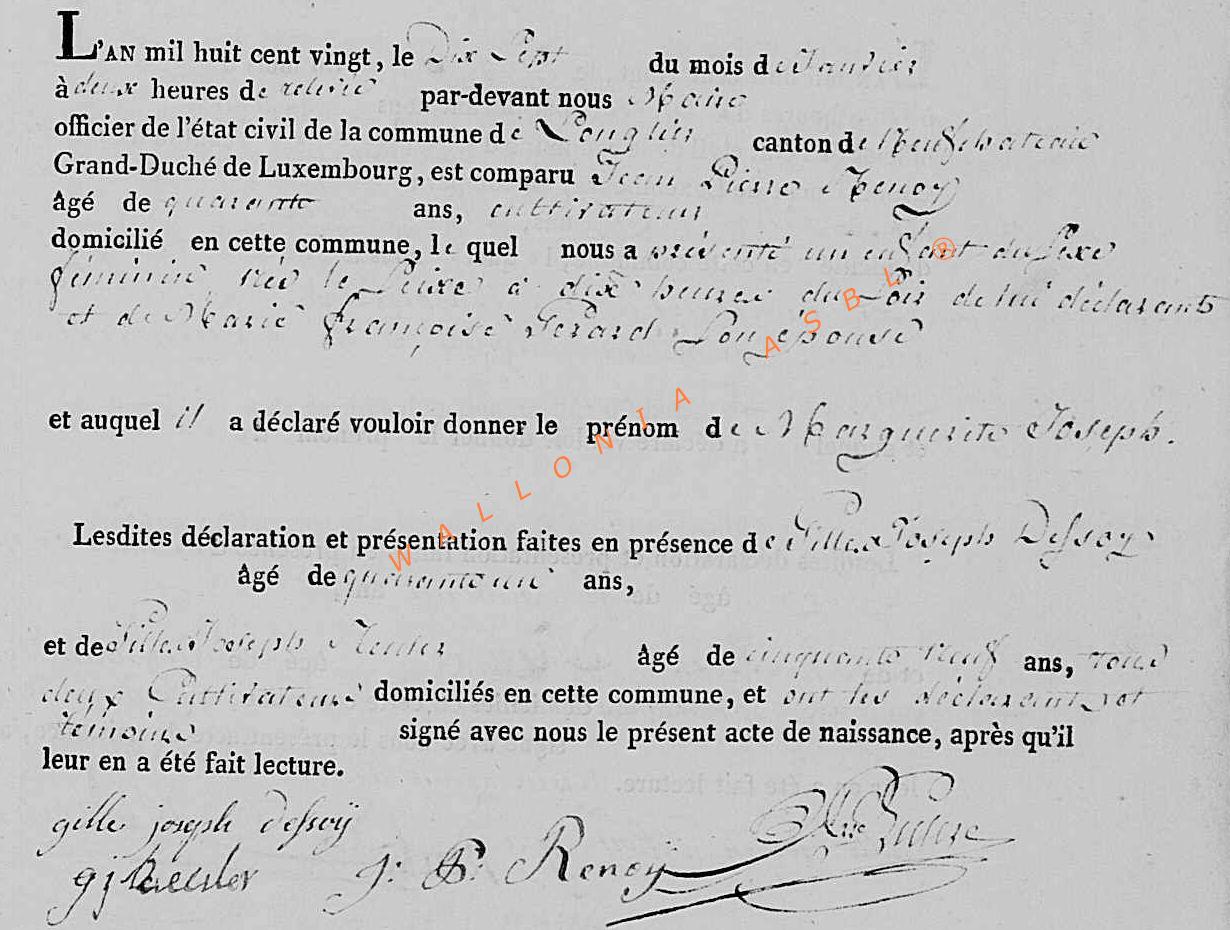 L'AN mil huit cent vingt, le Dix Sept du mois de Janvier
à deux heures de relevée par-devant nous Maire
officier de l'état civil de la commune de Longlier canton de Neufchateau
Grand-Duché de Luxembourg, est comparu Jean Pierre Renoy
âgé de quarante ans, cultivateur
domicilié en cette commune, le quel nous a présenté un enfant du Sexe
féminin née le Seize à dix heures du Soir de lui déclarant
et de Marie françoise Gerard Son épouse
et auquel il a déclaré vouloir donner le prénom de Marguerite Joseph.
Lesdites déclaration et présentation faites en présence de Gille Joseph Dessoy
âgé de quarante un ans,
et de Gille Joseph âgé de cinquante neuf ans, tous
deux Cultivateurs domiciliés en cette commune, et ont les déclarant et
témoins signé avec nous le présent acte de naissance, après qu'il
leur en a été fait lecture.
gille joseph dessoÿ
g j J: P: Renoÿ
WALLONIA ASBL ®